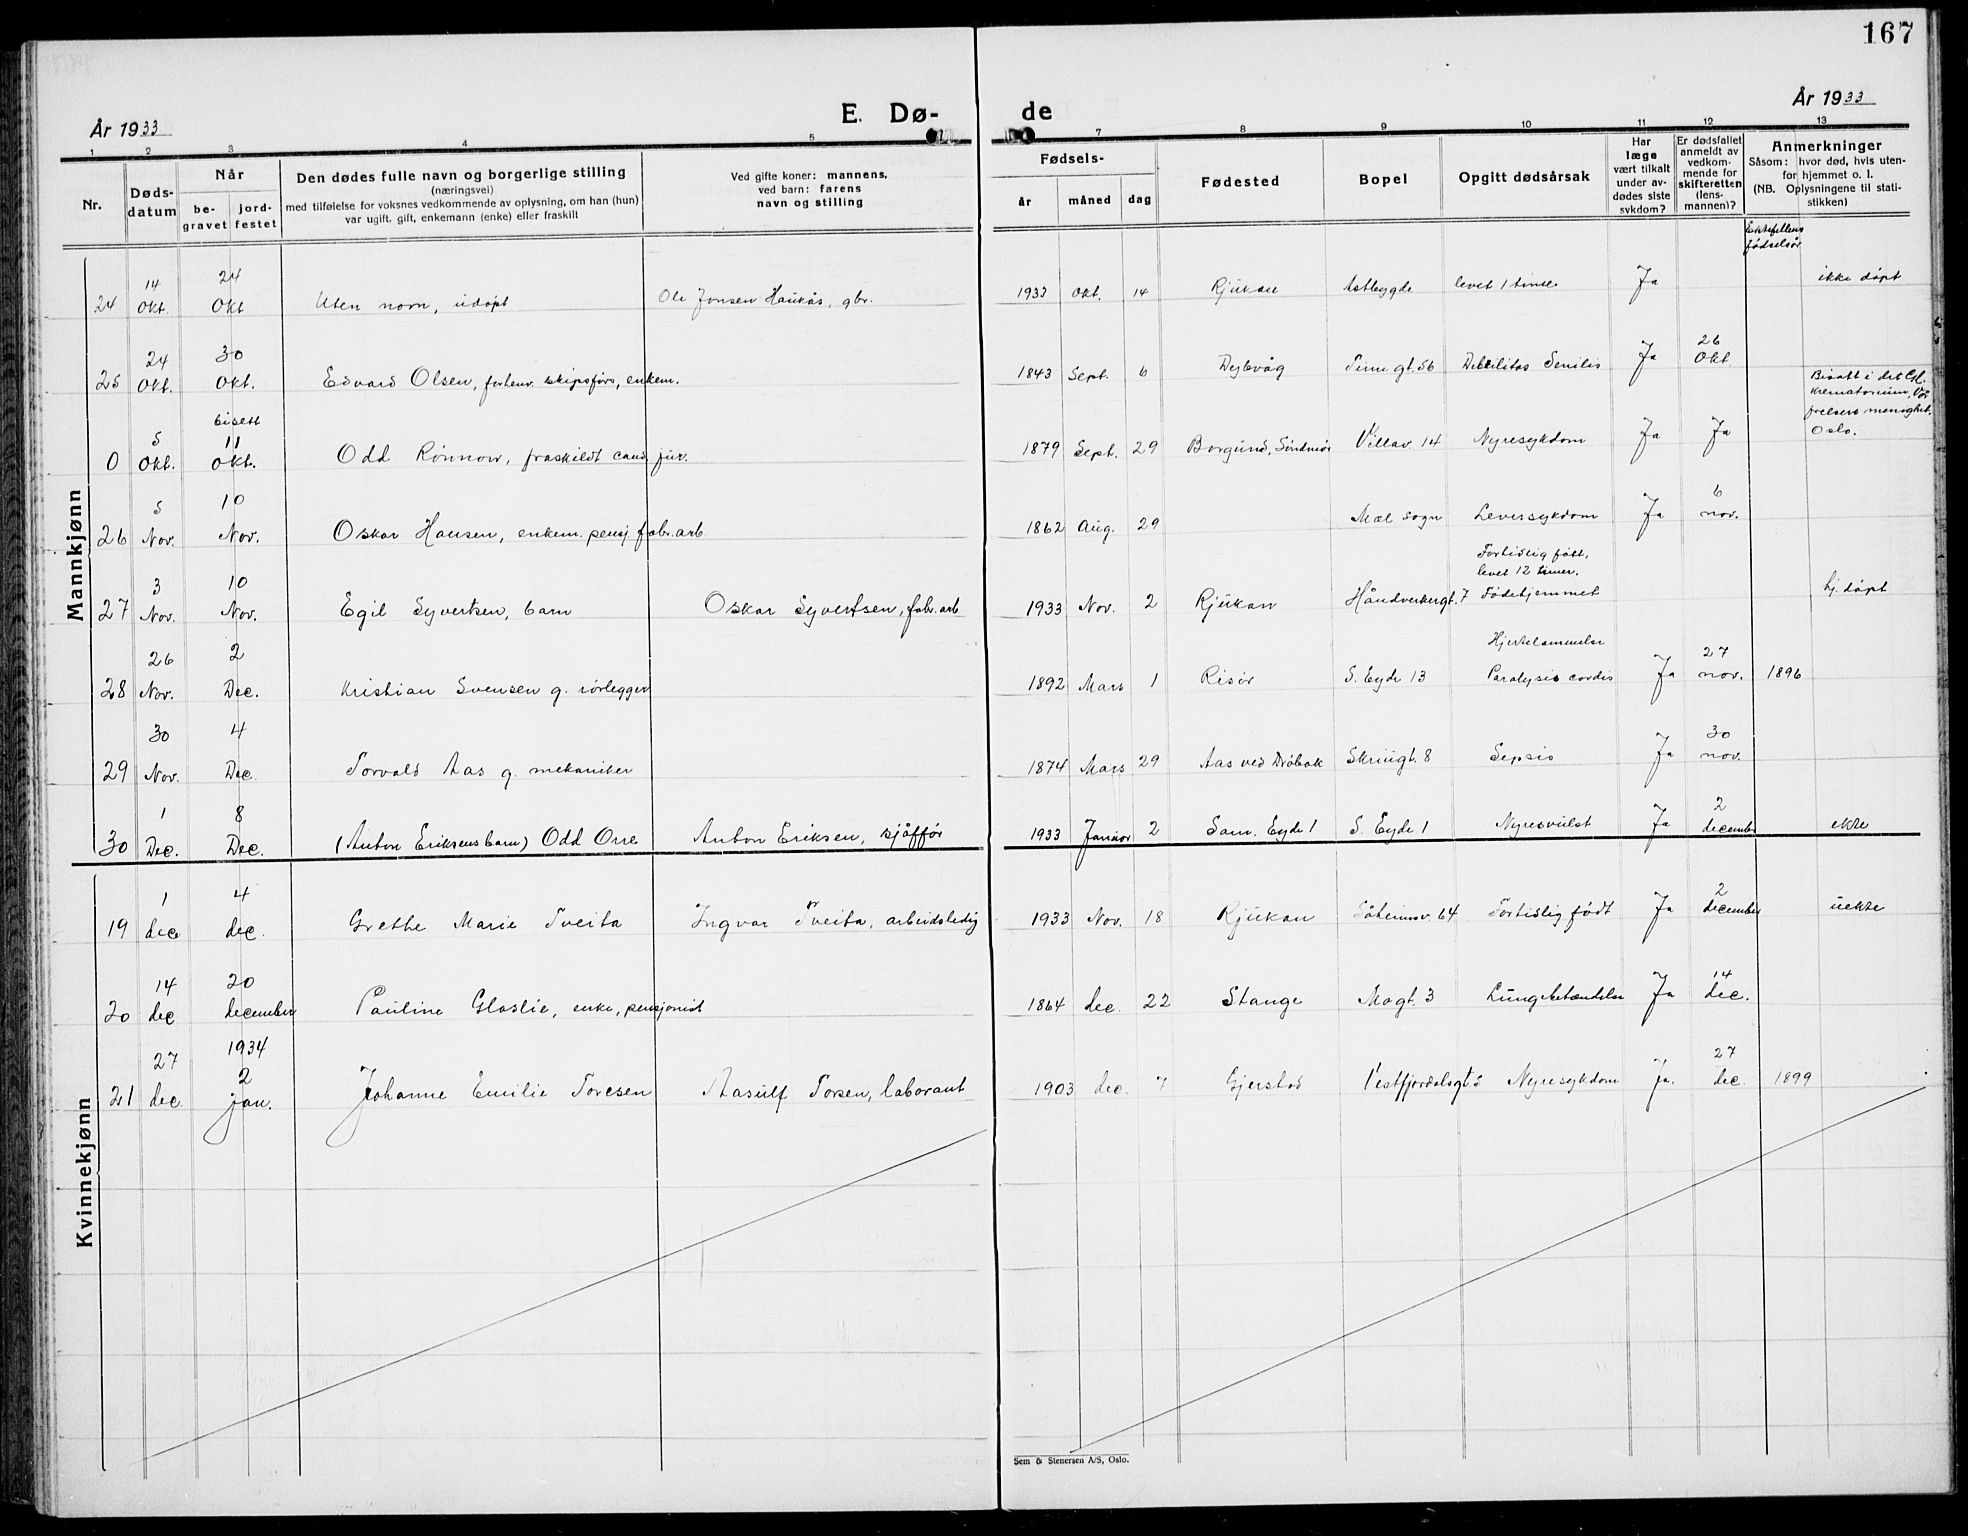 167
År 1933
E. Dø-
de
År 1933
1 2 3 4 5 7 8 9 10 11 12 13
Nr.
Døds-
datum
Når
be-
gravet
jord-
festet
Den dødes fulle navn og borgerlige stilling
(næringsvei)
med tilføielse for voksnes vedkommende av oplysning, om han (hun)
var ugift, gift, enkemann (enke) eller fraskilt
Ved gifte koner: mannens,
ved barn: farens
navn og stilling
Fødsels-
år måned dag
Fødested
Bopel
Opgitt dødsårsak
Har
læge
vært tilkalt
under av-
dødes siste
sykdom?
Er dødsfallet
anmeldt av
vedkom-
mende for
skifteretten
(lens-
mannen)?
Anmerkninger
Såsom: hvor død, hvis uten-
for hjemmet o. l.
(NB. Oplysningene til stati-
stikken)
Ektefellens
fødselsår
Mannkjønn
14 24
24 Okt. Okt Uten navn, udøpt Ole Jonsen Haukås, gbr. 1933 Okt. 14 Rjukan Østbygde levet 1 time Ja ikke døpt
24 30 26
25 Okt. Okt. Edvard Olsen, forhenv. skipsførs, enkem. 1843 Sept. 6 Dybvåg Tinngt. 56 Debilitas Senilis Ja Okt
bisett
5 11
0 Okt. Okt. Odd Rønnow, fraskildt cand. jur. 1879 Sept. 29 Borgund, Søndmør Villav. 14 Nyresykdom Ja Ja
Bisatt i det
krematorium, Vår
frelsers menighet,
Oslo.
5 10 6
26 Nov. Nov. Oskar Hansen, enkem. pensj. fabr. arb. 1862 Aug. 29 Mæl sogn Leversykdom Ja nov.
Fortidlig født,
levet 12 timer.
3 10
27 Nov. Nov. Egil Syvertsen, barn Oskar Syvertsen, fabr. arb 1933 Nov. 2 Rjukan Håndverkergt. 7 Fødehjemmet hj. døpt
Hjertelammelse
26 2 27
28 Nov. Dec. Kristian Svensen g. rørlegger 1892 Mars 1 Risør S. Eyde 13 Paralysis cordis Ja nov. 1896
30 4 30
29 Nov. Dec. Torvald Aas g. mekaniker 1874 Mars 29 Aas ved Drøbak Skriugt. 8 Sepsis Ja nov.
1 8 2
30 Dec. Dec. (Anton Eriksens barn) Odd Orre Anton Eriksen, sjåffør 1933 Januar 2 Sam. Eyde 1 S. Eyde 1 Nyresvulst Ja december ekte
Kvinnekjønn
1 4 2
19 dec dec. Grethe Marie Tveita Ingvar Tveita, arbeidsledig 1933 Nov. 18 Rjukan Såheimsv. 64 Fortidlig født Ja december uekte
14 20 14
20 dec december Pauline Glaslie, enke, pensjonist 1864 dec. 22 Stange Mogt. 3 Lungebetændelse Ja dec.
1934
27 2 27
21 dec. jan. Johanne Emilie Toresen Aasulf Torsen, laborant 1903 dec. 7 Gjerstad Vestfjordalsgt. 5 Nyresykdom Ja. dec. 1899
Sem & Stenersen A/S, Oslo.